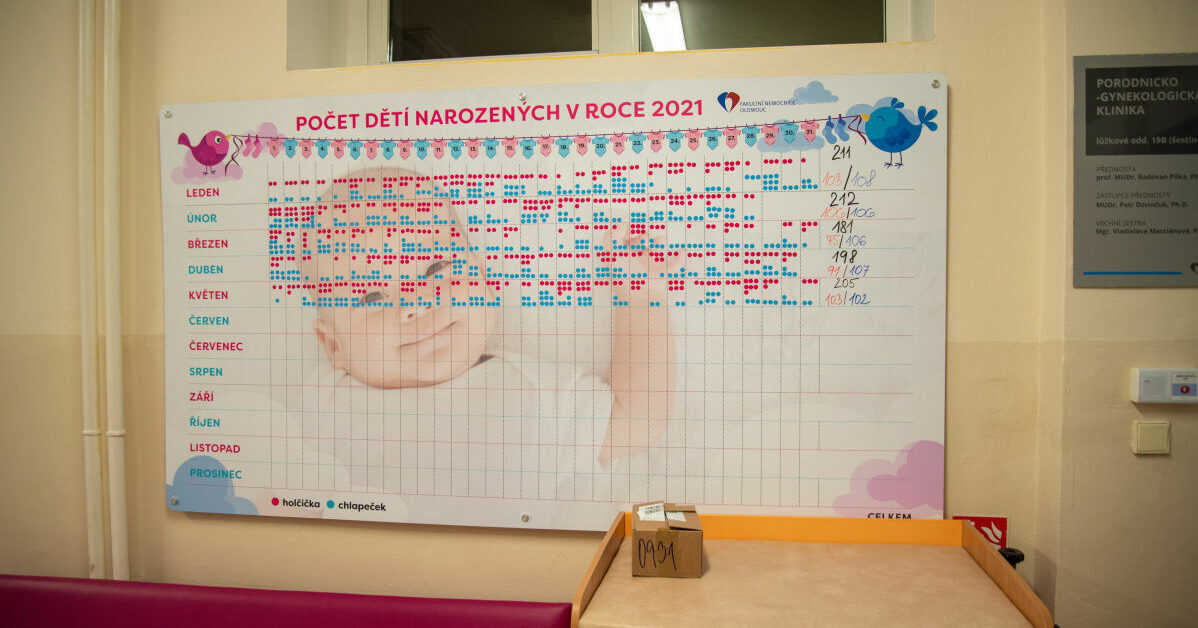 POČET DĚTÍ NAROZENÝCH V ROCE 2021
FAKULTNÍ NEMOCNICE
OLOMOUC
1. 2. 3. 4. 5. 6. 7. 8. 9. 10. 11. 12. 13. 14. 15. 16. 17. 18. 19. 20. 21. 22. 23. 24. 25. 26. 27. 28. 29. 30. 31.
LEDEN 211
103/108
ÚNOR 212
106/106
BŘEZEN 181
75/106
DUBEN 198
91/107
KVĚTEN 205
103/102
ČERVEN
ČERVENEC
SRPEN
ZÁŘÍ
ŘÍJEN
LISTOPAD
PROSINEC
holčička chlapeček
CELKEM
0931
PORODNICKO
-GYNEKOLOGICKÁ
KLINIKA
lůžkové odd. 19B
PŘEDNOSTA
prof. MUDr. Radovan Pilka, Ph
ZÁSTUPCE PŘEDNOSTY
MUDr. Petr Ph.D.
VRCHNÍ SESTRA
Mgr. Vladislava